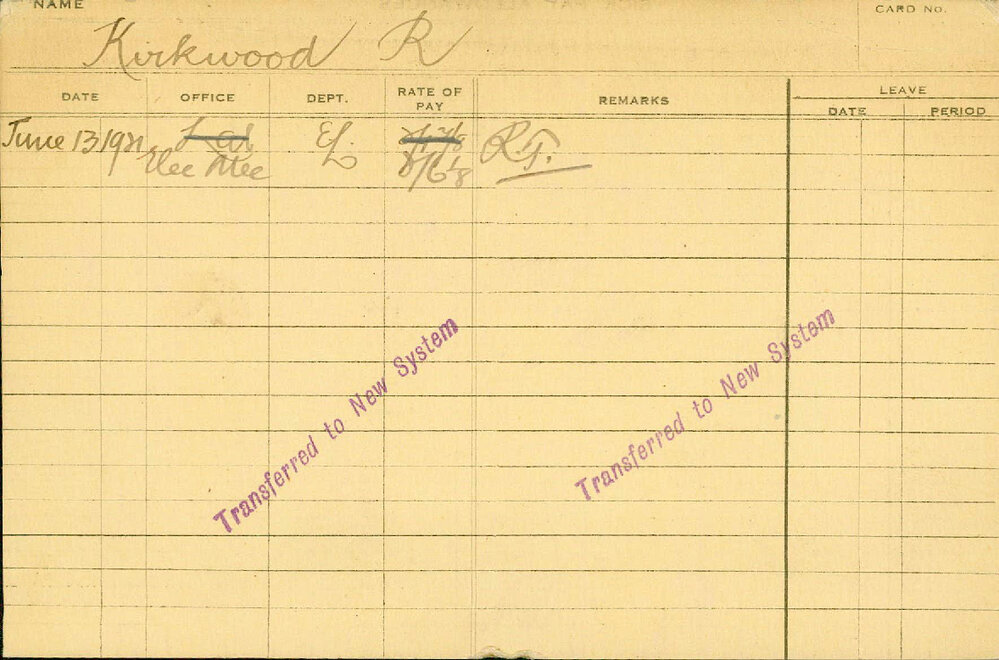 NAME
CARD NO.
Kirkwood R
DATE OFFICE DEPT. RATE OF PAY REMARKS LEAVE
DATE PERIOD
June 13 1921 Lab EL R.T.
Elec Mec
Transferred to New System
Transferred to New System